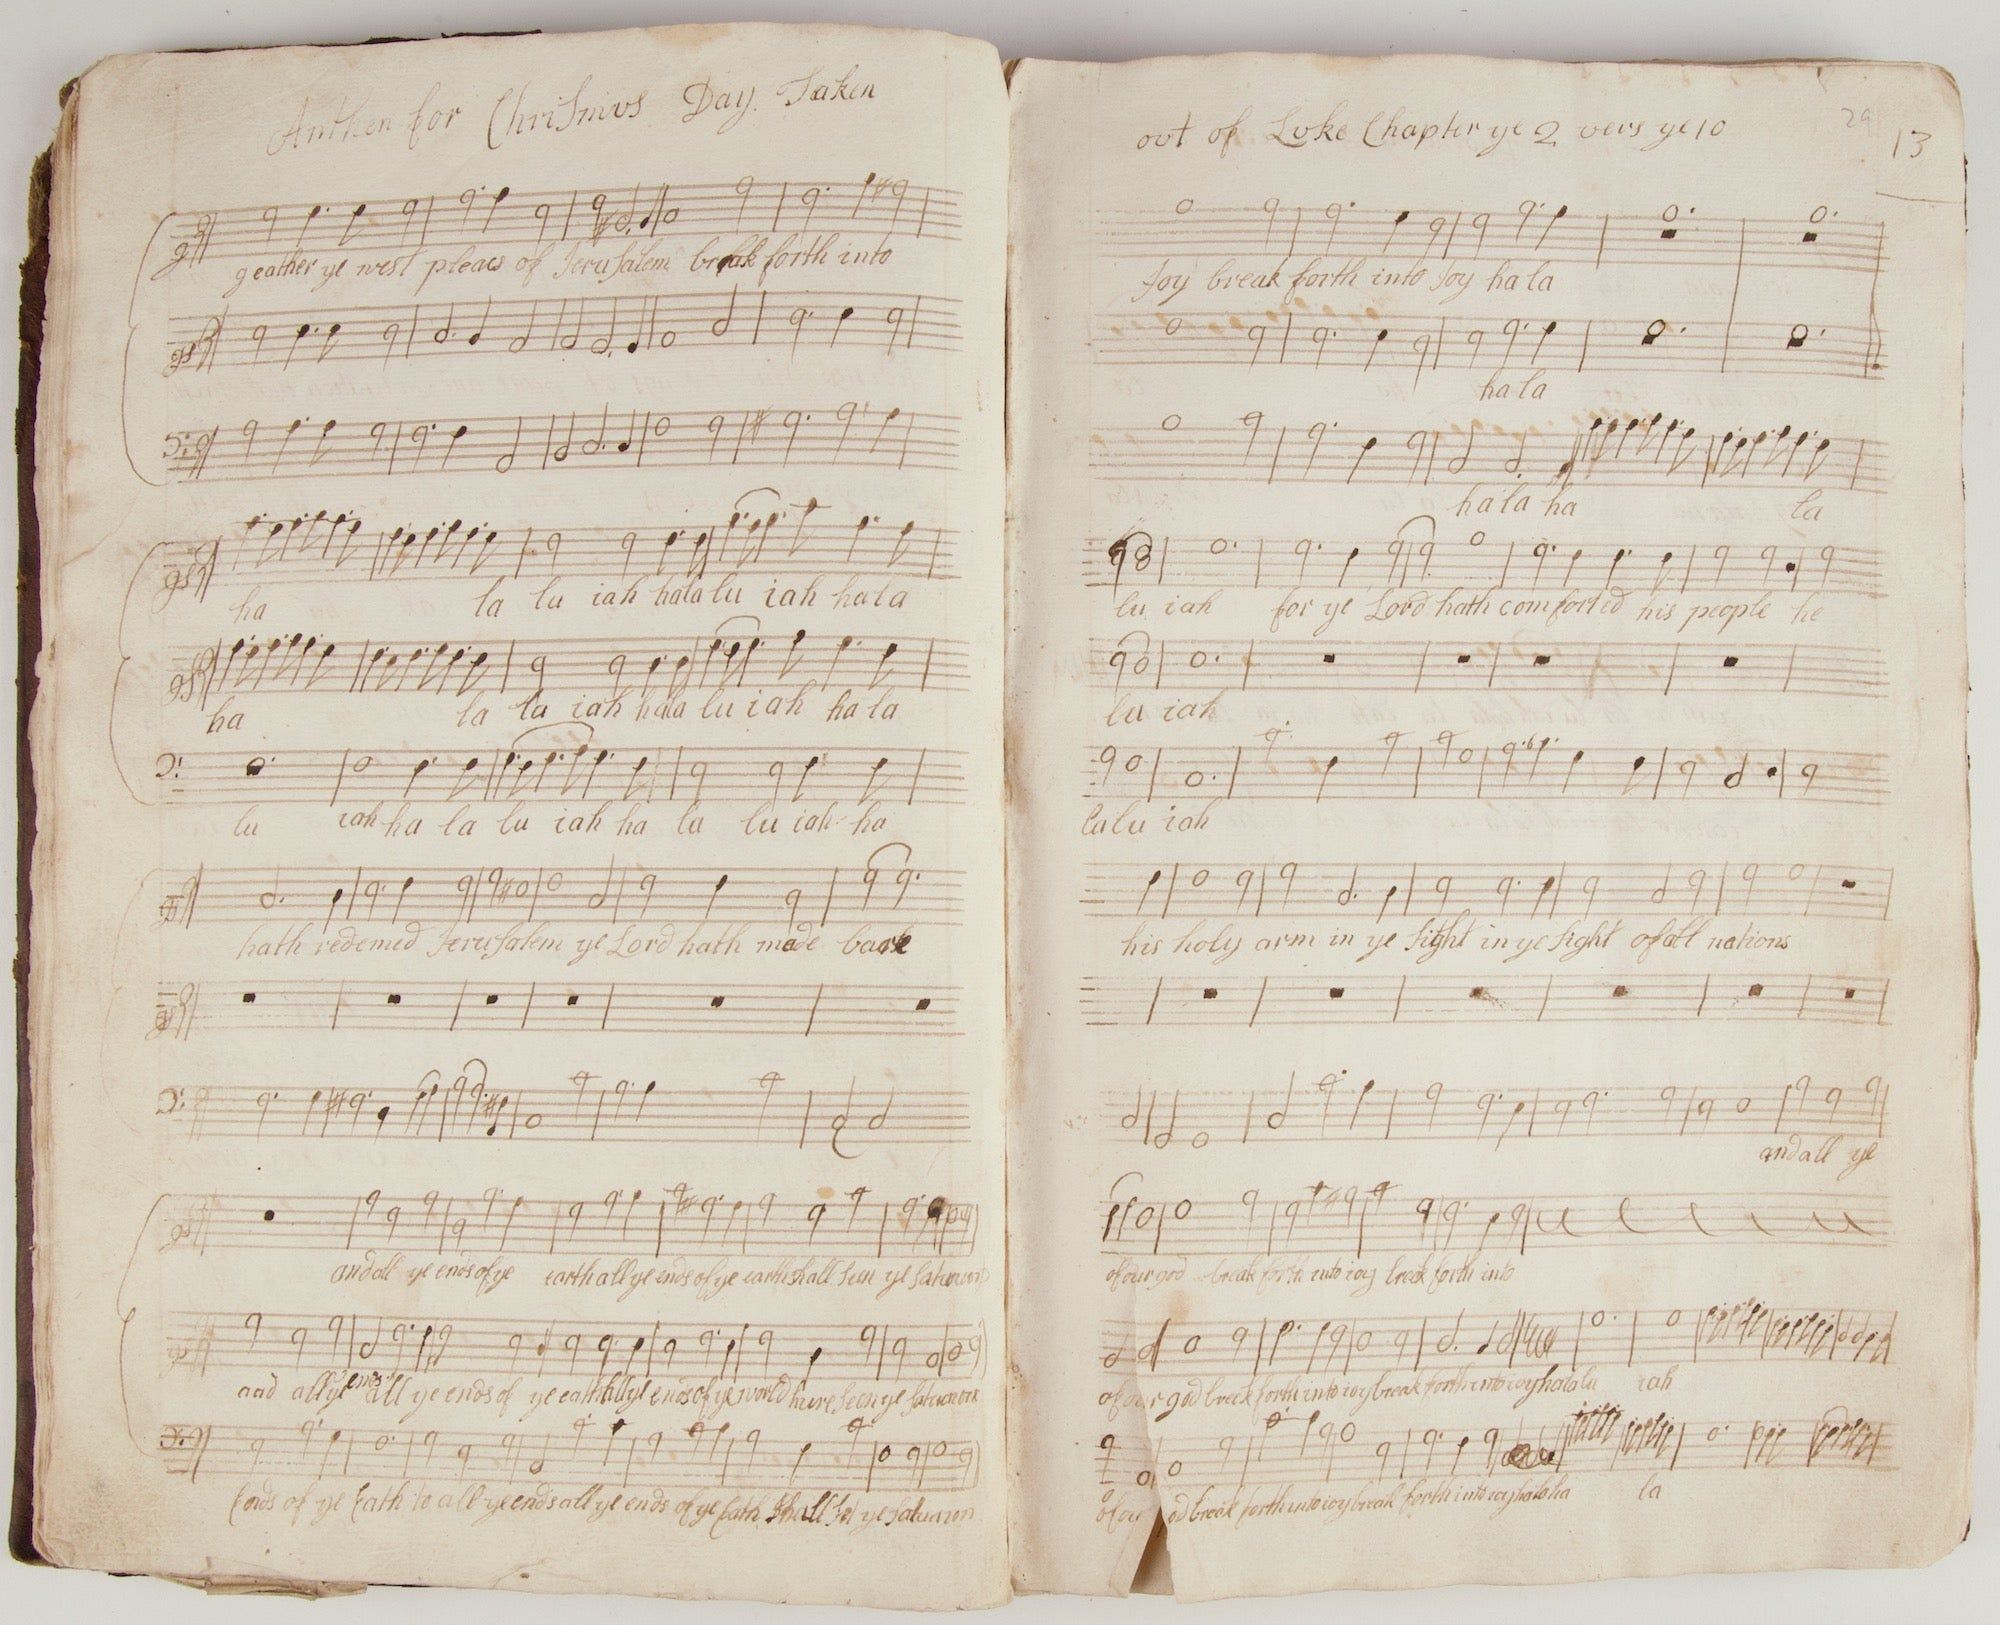 Anthen for Chrismus Day Taken
geather ye west pleacs of Jerusalem break forth into
ha la lu iah hala lu iah hala
ha la lu iah hala lu iah ha la
lu iah ha la lu iah ha la lu iah ha
hath redemed Jerusalem ye Lord hath made bare
and all ye ends of ye earth all ye ends of ye earth shall seen ye
and all ye ends all ye ends of ye earth all ye ends of ye world have seen ye
Ends of ye Earth to all ye ends all ye ends of ye Eath shall ye
out of Luke Chapter ye 2 vers ye 10
29
13
Joy break forth into Joy ha la
ha la
ha la ha la
lu iah for ye Lord hath comforted his people he
lu iah
la lu iah
his holy arm in ye sight in ye sight of all nations
and all ye
of our god break forth into ioy breek forth into
of our god breek forth into ioy break forth into ioy halalu iah
of ou od breek forth into ioy break forth into ioy hala ha la